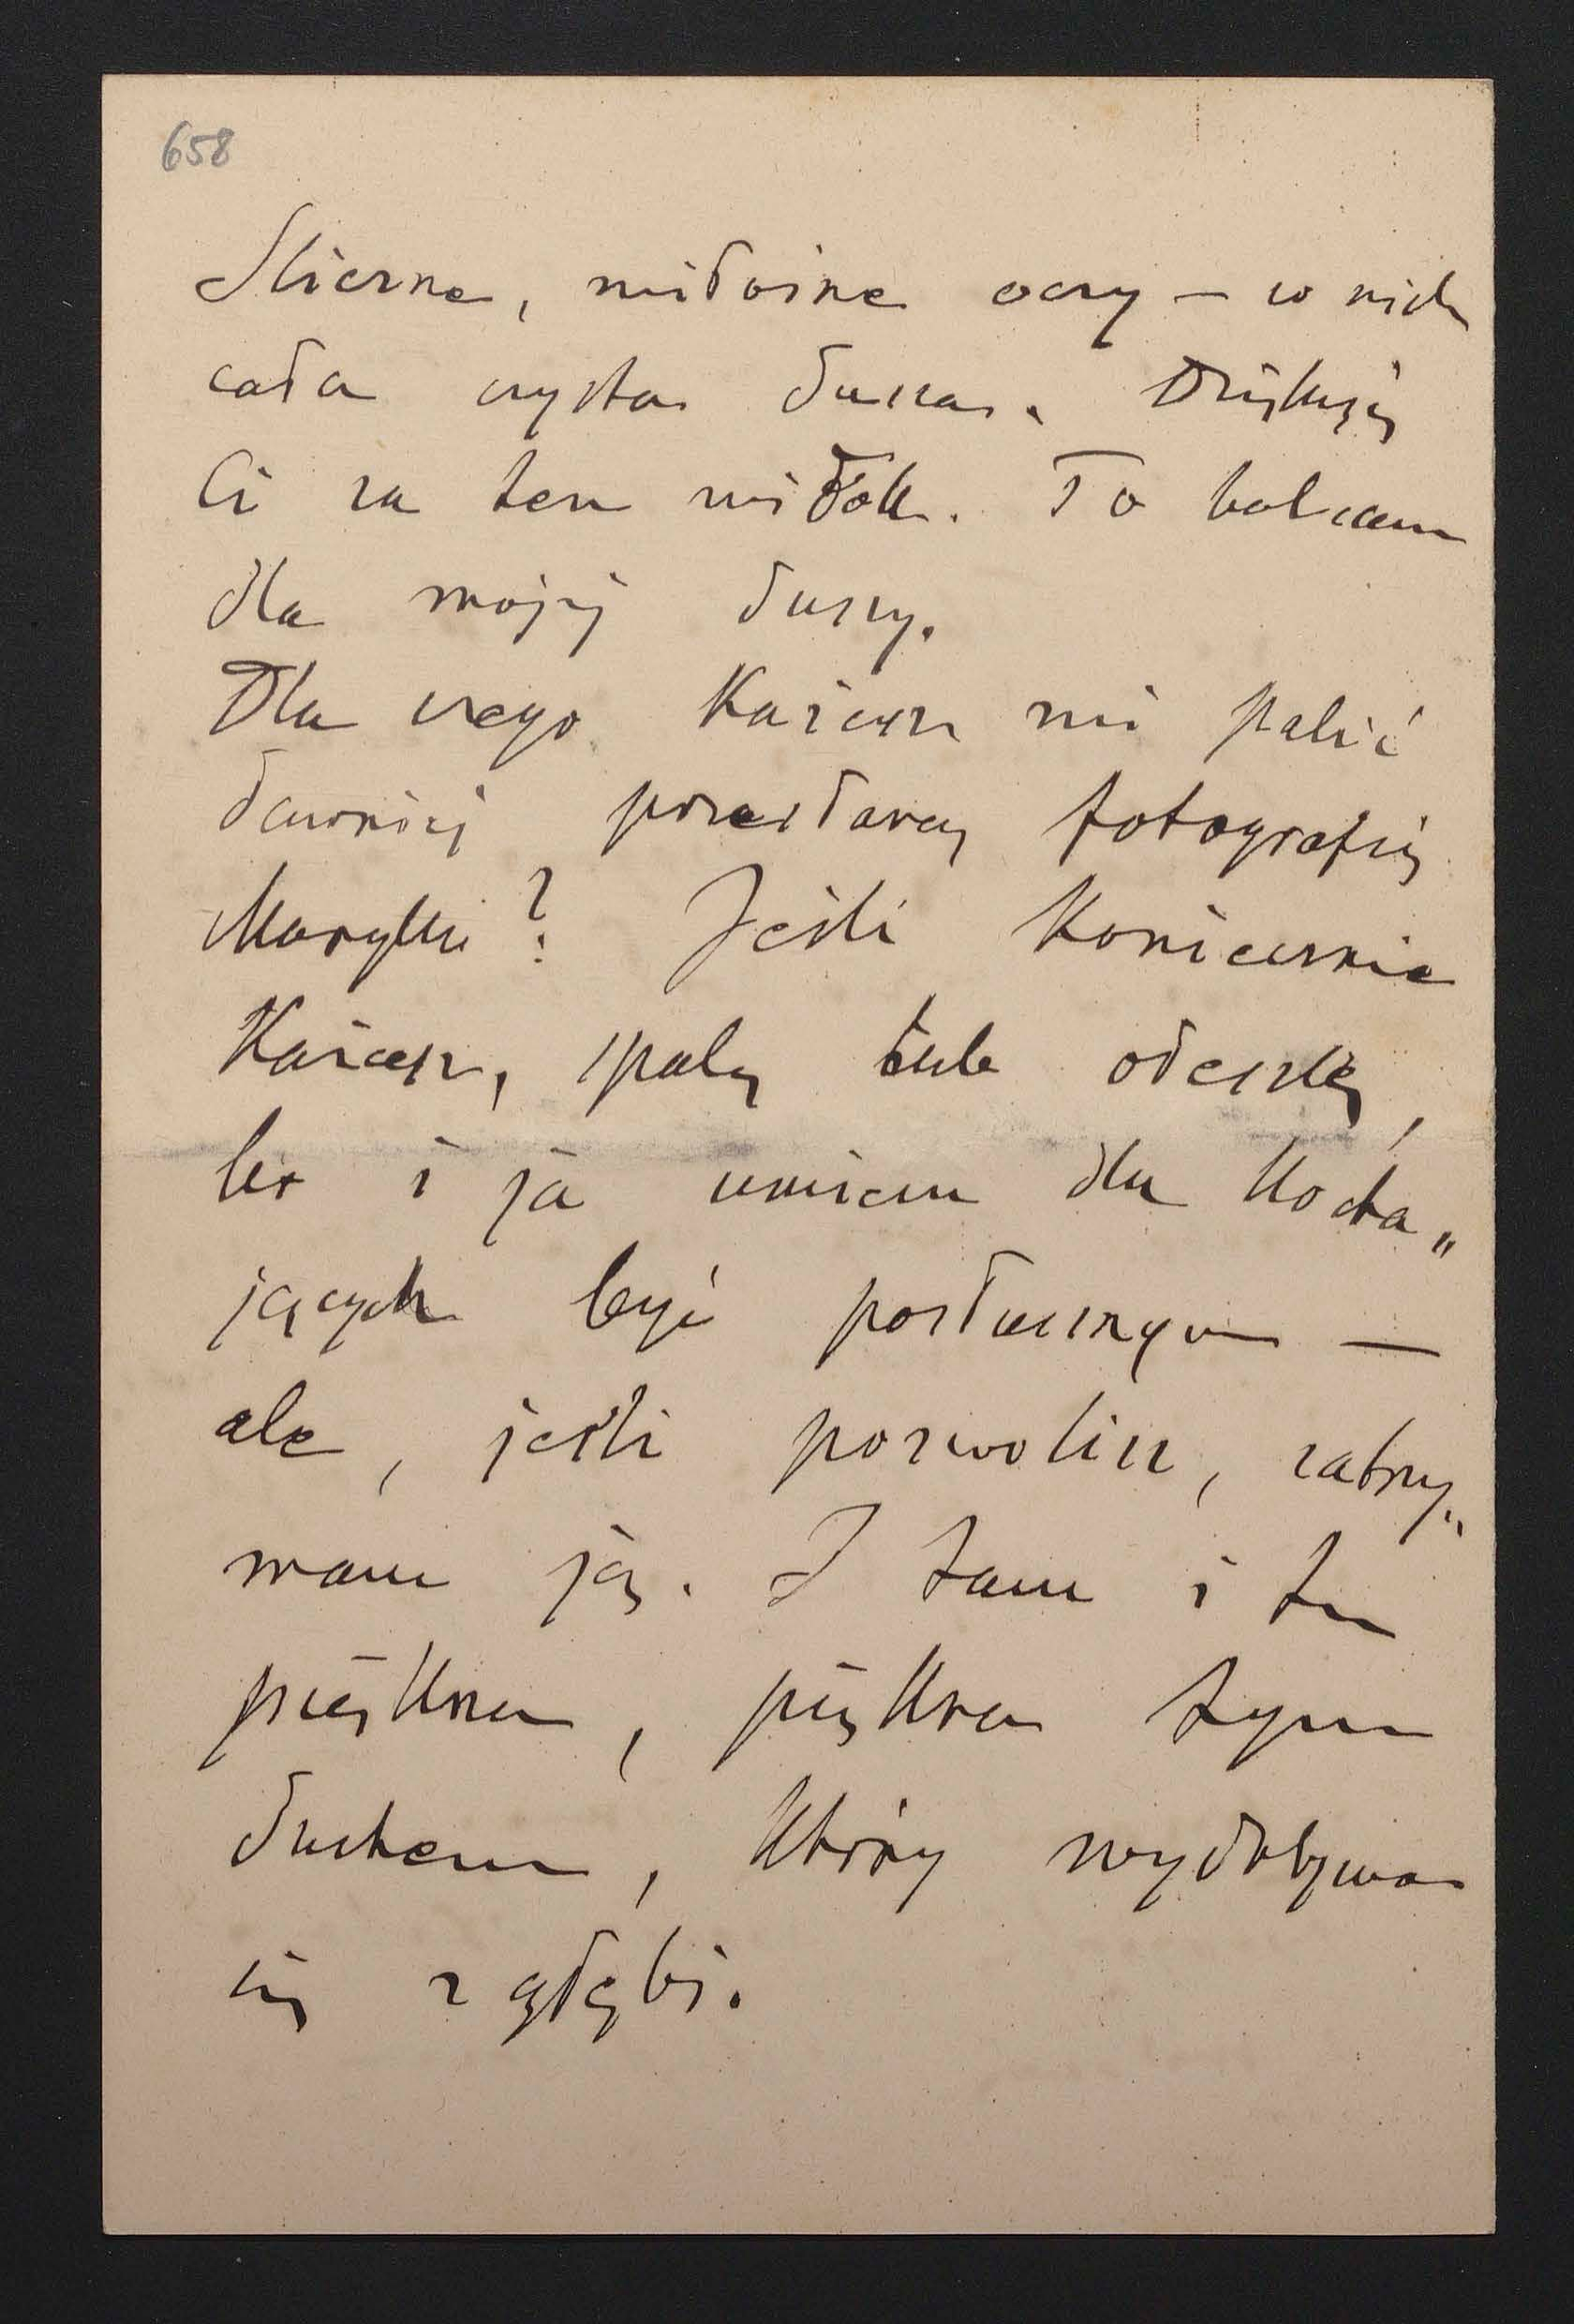 658
Śliczne, miłosne oczy — w nich
cała czysta dusza. Dziękuję
Ci za ten widok. To balsam
dla mojej duszy.
Dla czego każesz mi palić
dawniej przesłaną fotografię
Marylki? Jeśli koniecznie
każesz, spalę lub odeszlę,
bo i ja umiem dla kocha„
jących być posłusznym —
ale, jeśli pozwolisz, zatrzy„
mam ją. I tam i tu
piękna, piękna tym
duchem, który wydobywa
się z głębi.